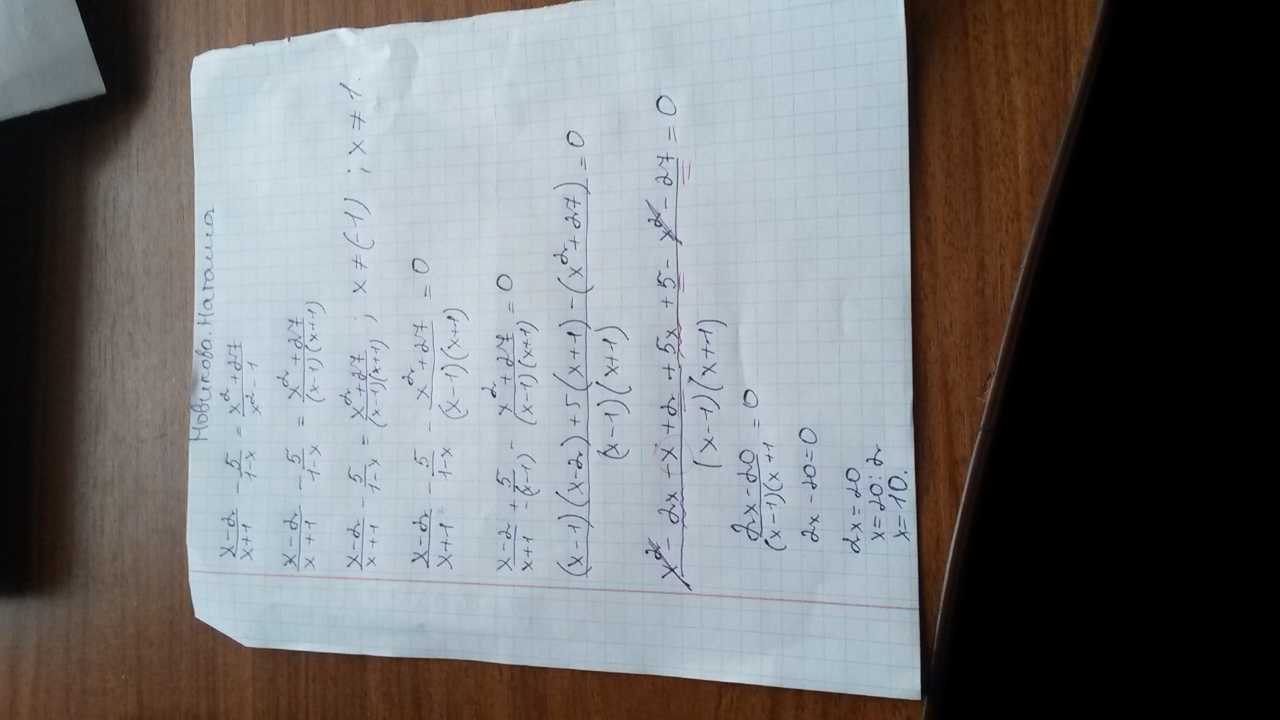 Новикова Наташа
x-2/x+1 - 5/1-x = x²+27/x²-1
x-2/x+1 - 5/1-x = x²+27/(x-1)(x+1)
x-2/x+1 - 5/1-x = x²+27/(x-1)(x+1) ; x≠(-1) ; x≠1.
x-2/x+1 - 5/1-x - x²+27/(x-1)(x+1) = 0
x-2/x+1 + 5/-(x-1) - x²+27/(x-1)(x+1) = 0
(x-1)(x-2)+5(x+1)-(x²+27)/(x-1)(x+1) = 0
x²-2x-x+2+5x+5-x²-27/(x-1)(x+1) = 0
2x-20/(x-1)(x+1 = 0
2x-20=0
2x=20
x=20:2
x=10.